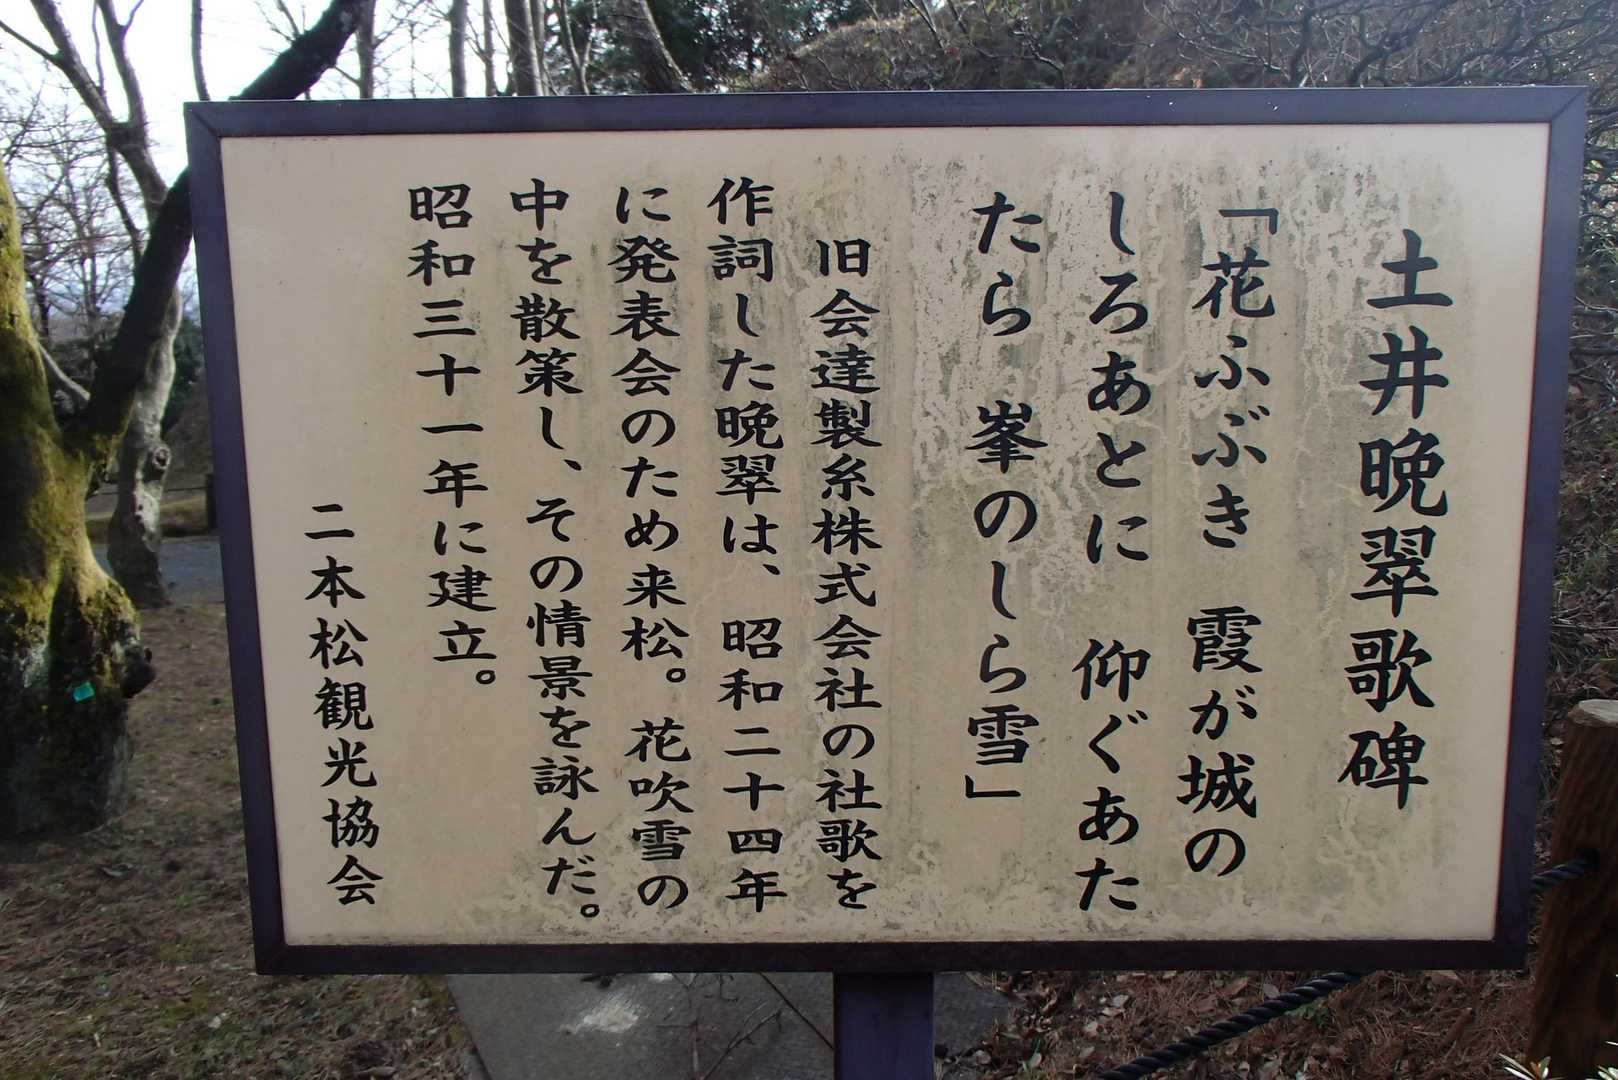 土井晩翠歌碑
「花ふぶき　霞が城の
しろあとに　仰ぐあた
たら　峯のしら雪」
旧会達製糸株式会社の社歌を
作詞した晩翠は、昭和二十四年
に発表会のため来松。花吹雪の
中を散策し、その情景を詠んだ。
昭和三十一年に建立。
二本松観光協会